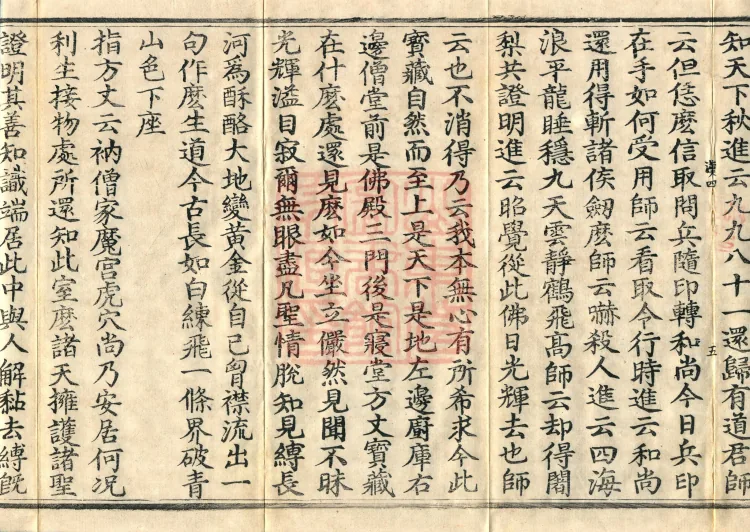 知天下秋進云九九八十一還歸有道君師
云但恁麽信取閫兵隨印轉和尚今日兵印
在手如何受用師云看取令行時進云和尚
還用得斬諸侯劒麽師云嚇殺人進云四海
浪平龍睡穩九天雲靜鶴飛高師云却得闍
梨共證明進云昭覺從此佛日光輝去也師
云也不消得乃云我本無心有所希求今此
寶藏自然而至上是天下是地左邊廚庫右
邊僧堂前是佛殿三門後是寢堂方丈寶藏
在什麽處還見麽如今坐立儼然見聞不昧
光輝溢目寂爾無眼盡凡聖情脫知見縛長
河爲酥酪大地變黃金從自己胷襟流出一
句作麽生道今古長如白練飛一條界破青
山色下座
指方丈云衲僧家魔宫虎穴尚乃安居何況
利生接物處所還知此室麽諸天擁護諸聖
證明其善知識端居此中與人解黏去縛旣
五